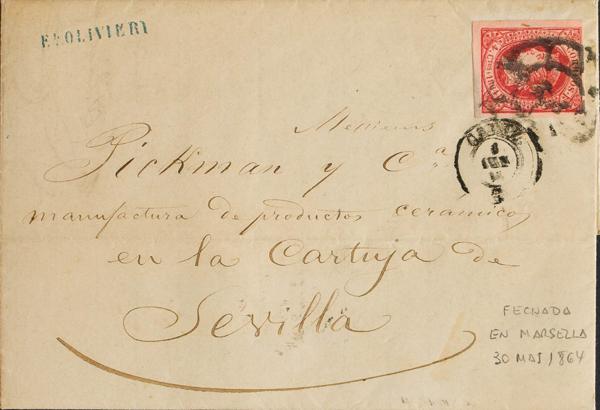 E. OLIVIERI
Messieurs
Pickman y Cª
manufactura de productos cerámicos
en la Cartuja de
Sevilla
FECHADA
EN MARSELLA
30 MAI 1864